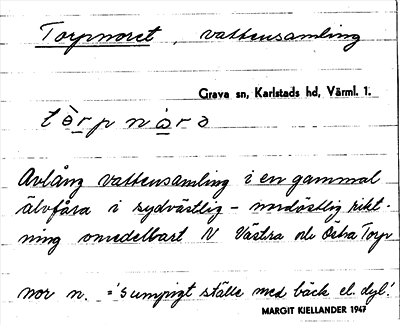 Torpnoret, vattensamling
Grava sn, Karlstads hd, Värml. 1.
tòrpnàrə
Avlång vattensamling i en gammal
älvfåra i sydvästlig - nordöstlig rikt-
ning omedelbart N Västra och Östra Torp
nor n. = 'sumpigt ställe med bäck el. dyl.'
MARGIT KJELLANDER 1947